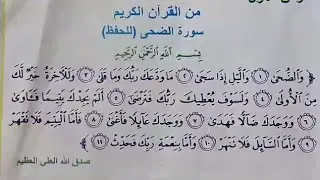 من القرآن الكريم
سورة الضحى (للحفظ)
بِسْمِ اللَّهِ الرَّحْمَٰنِ الرَّحِيمِ
وَالضُّحَىٰ ١ وَاللَّيْلِ إِذَا سَجَىٰ ٢ مَا وَدَّعَكَ رَبُّكَ وَمَا قَلَىٰ ٣ وَلَلْآخِرَةُ خَيْرٌ لَّكَ
مِنَ الْأُولَىٰ ٤ وَلَسَوْفَ يُعْطِيكَ رَبُّكَ فَتَرْضَىٰ ٥ أَلَمْ يَجِدْكَ يَتِيمًا فَآوَىٰ
٦ وَوَجَدَكَ ضَالًّا فَهَدَىٰ ٧ وَوَجَدَكَ عَائِلًا فَأَغْنَىٰ ٨ فَأَمَّا الْيَتِيمَ فَلَا تَقْهَرْ
٩ وَأَمَّا السَّائِلَ فَلَا تَنْهَرْ ١٠ وَأَمَّا بِنِعْمَةِ رَبِّكَ فَحَدِّثْ ١١
صدق الله العلي العظيم